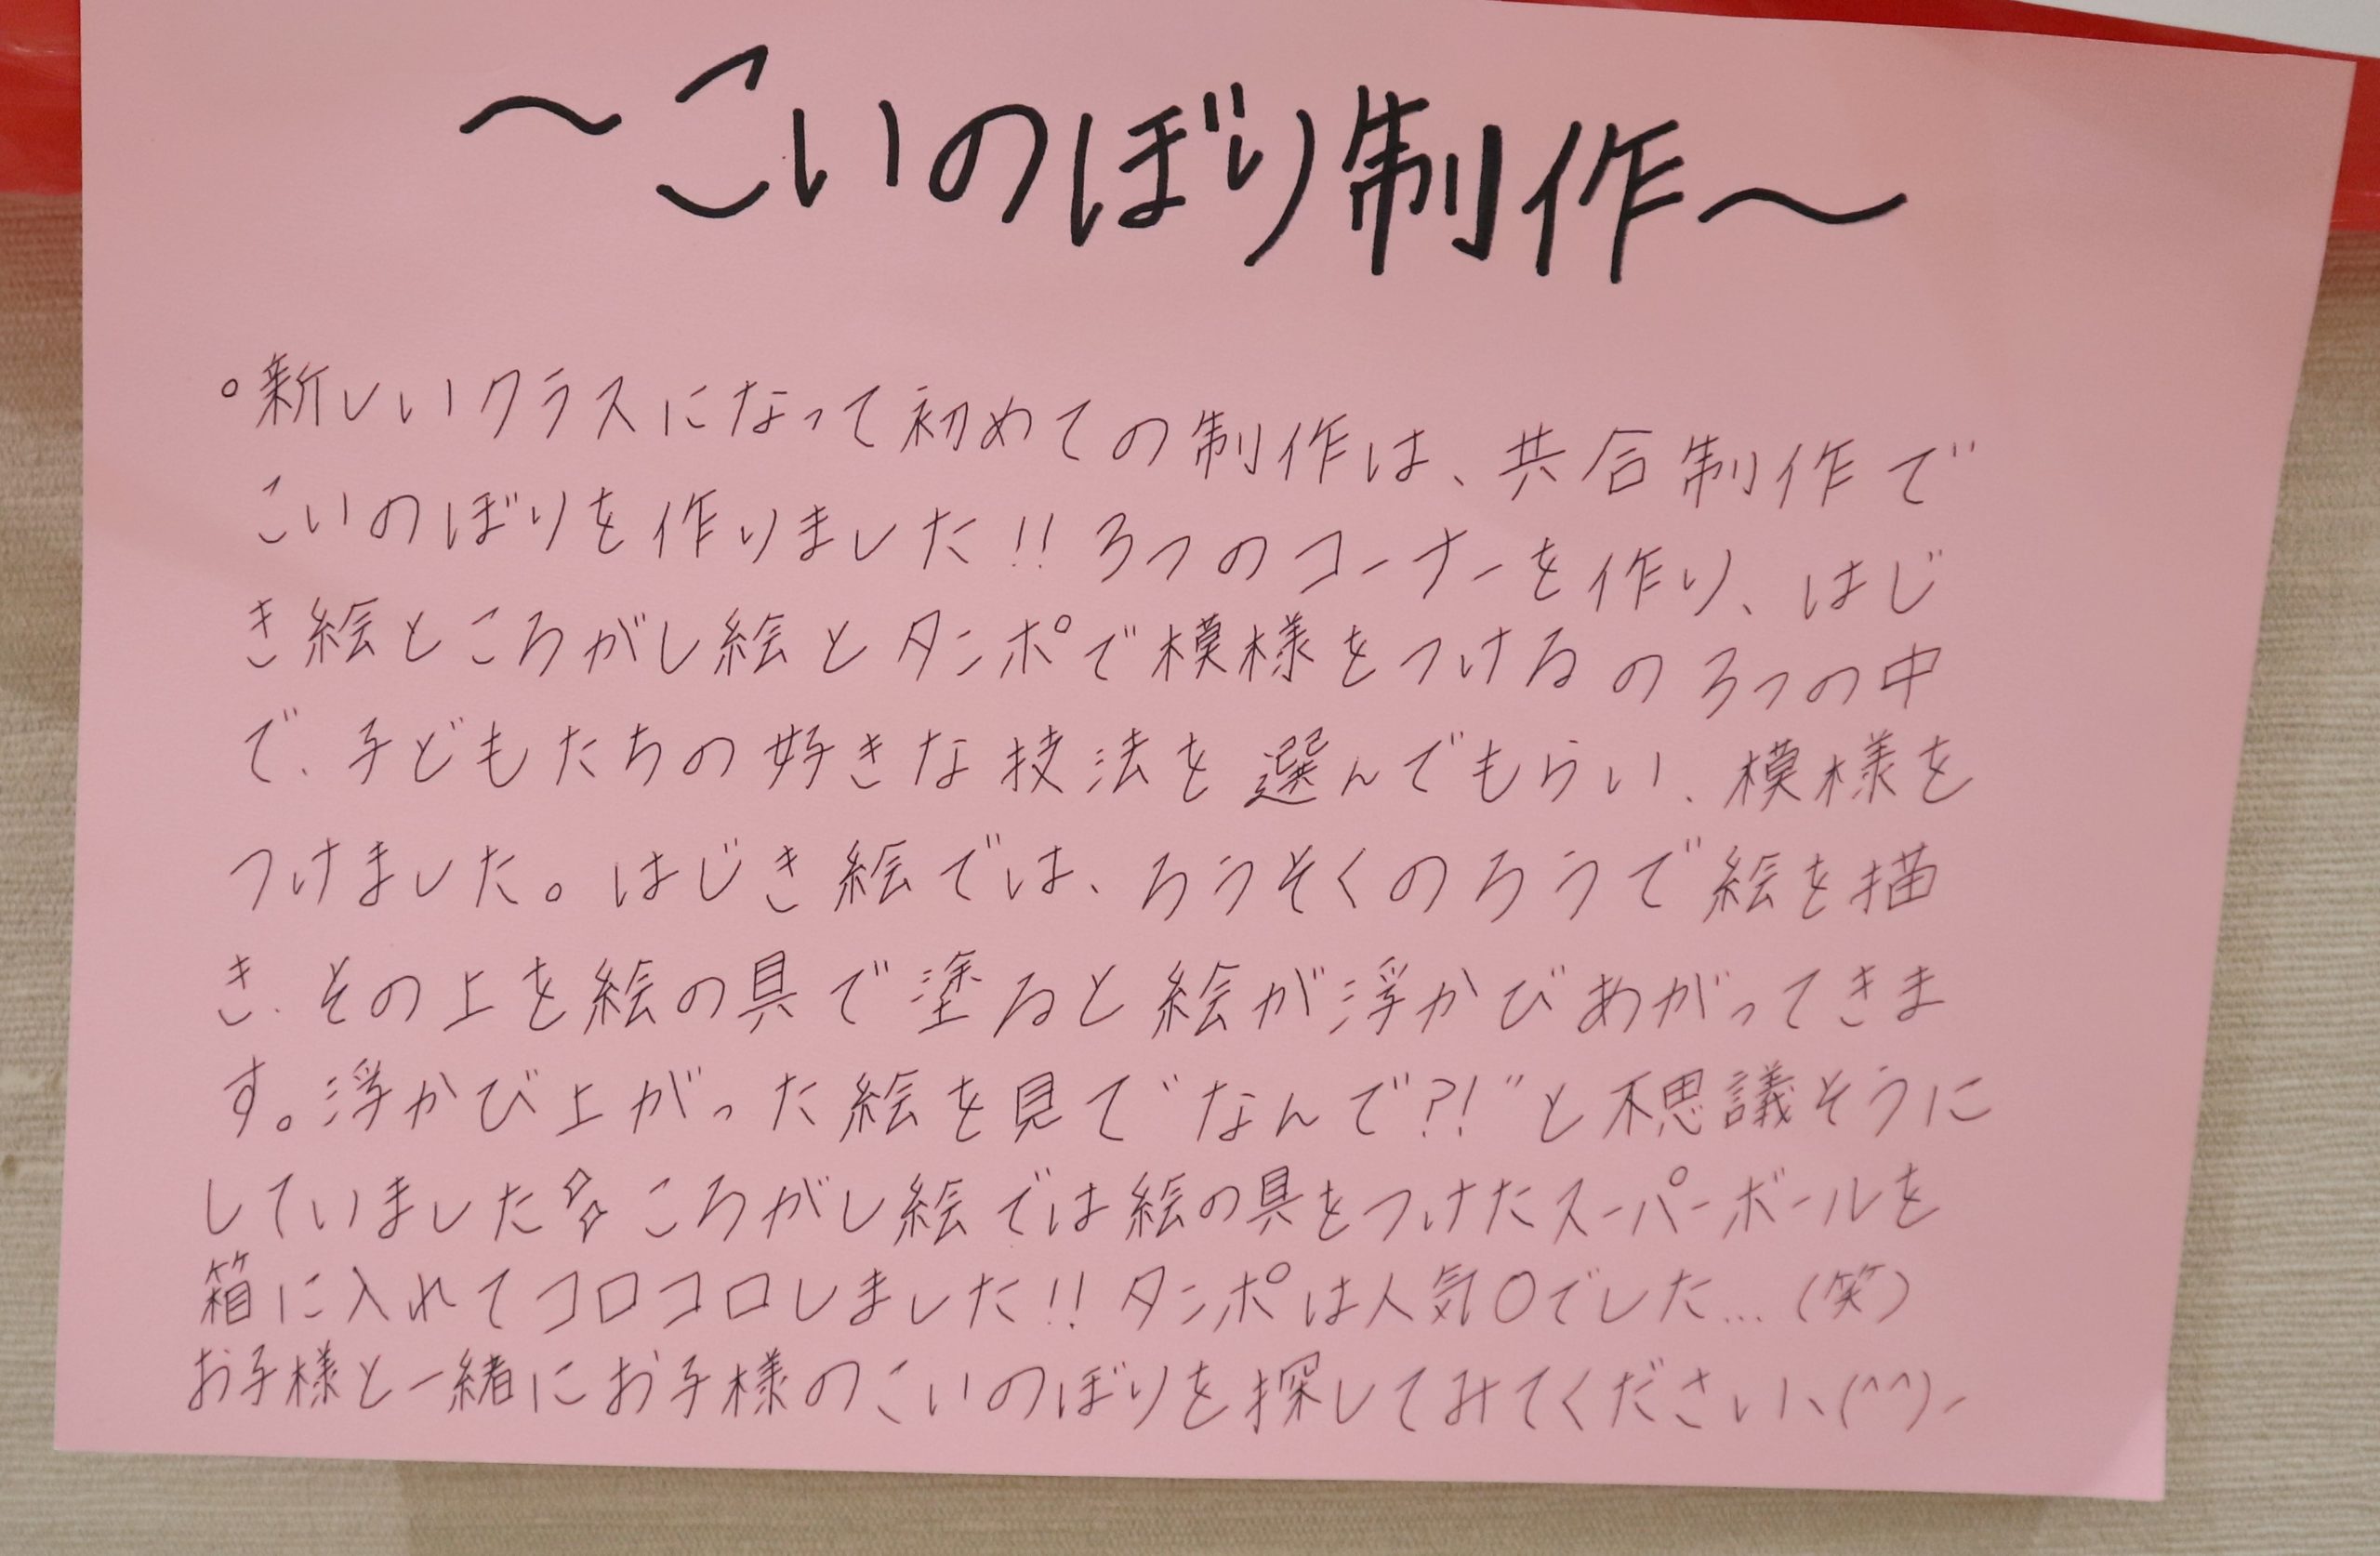 ～こいのぼり制作～
°新しいクラスになって初めての制作は、共合制作で
こいのぼりを作りました!! 3つのコーナーを作り、はじ
き絵ところがし絵とタンポで模様をつけるの3つの中
で、子どもたちの好きな技法を選んでもらい、模様を
つけました。はじき絵では、ろうそくのろうで絵を描
き、その上を絵の具で塗ると絵が浮かびあがってきま
す。浮かび上がった絵を見て“なんで?!”と不思議そうに
していました ころがし絵では絵の具をつけたスーパーボールを
箱に入れてコロコロしました!! タンポは人気0でした…(笑)
お子様と一緒にお子様のこいのぼりを探してみてくださいヽ(^^)ノ